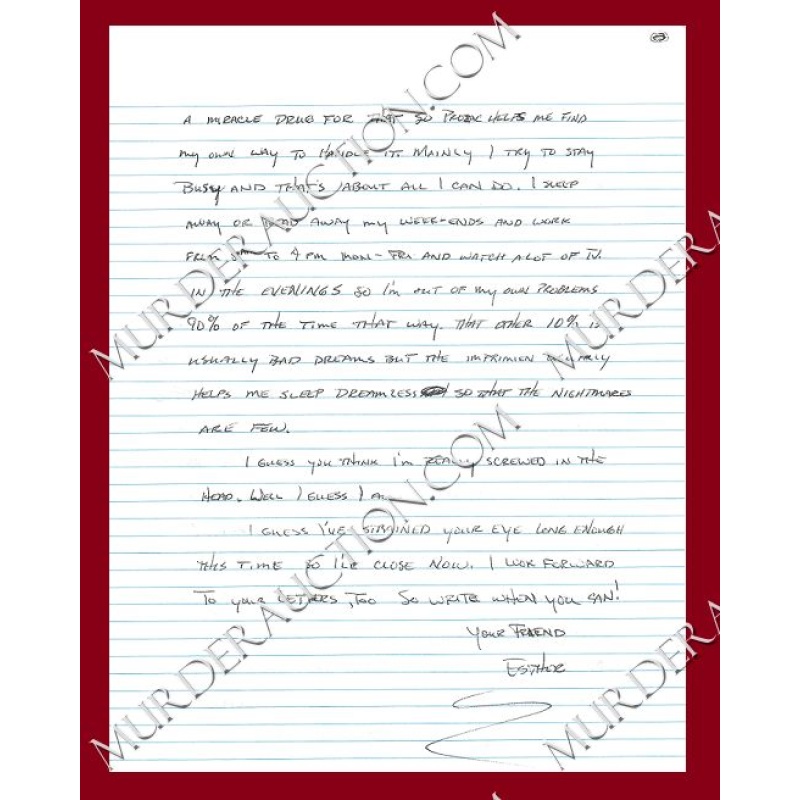 A MIRACLE DRUG FOR THAT SO PROZAC HELPS ME FIND
MY OWN WAY TO HANDLE IT. MAINLY I TRY TO STAY
BUSY AND THAT'S ABOUT ALL I CAN DO. I SLEEP
AWAY OR READ AWAY MY WEEK-ENDS AND WORK
FROM TO 4 PM MON-FRI AND WATCH A LOT OF TV.
IN THE EVENINGS SO I'M OUT OF MY OWN PROBLEMS
90% OF THE TIME THAT WAY. THAT OTHER 10% IS
USUALLY BAD DREAMS BUT THE IMPRIMIEN USUALLY
HELPS ME SLEEP DREAMLESS SO THAT THE NIGHTMARES
ARE FEW.
I GUESS YOU THINK I'M REALLY SCREWED IN THE
HEAD. WELL I GUESS I AM.
I GUESS I'VE STRAINED YOUR EYE LONG ENOUGH
THIS TIME SO I'LL CLOSE NOW. I LOOK FORWARD
TO YOUR LETTERS, TOO SO WRITE WHEN YOU CAN!
YOUR FRIEND
MURDERAUCTION.COM
MURDERAUCTION.COM